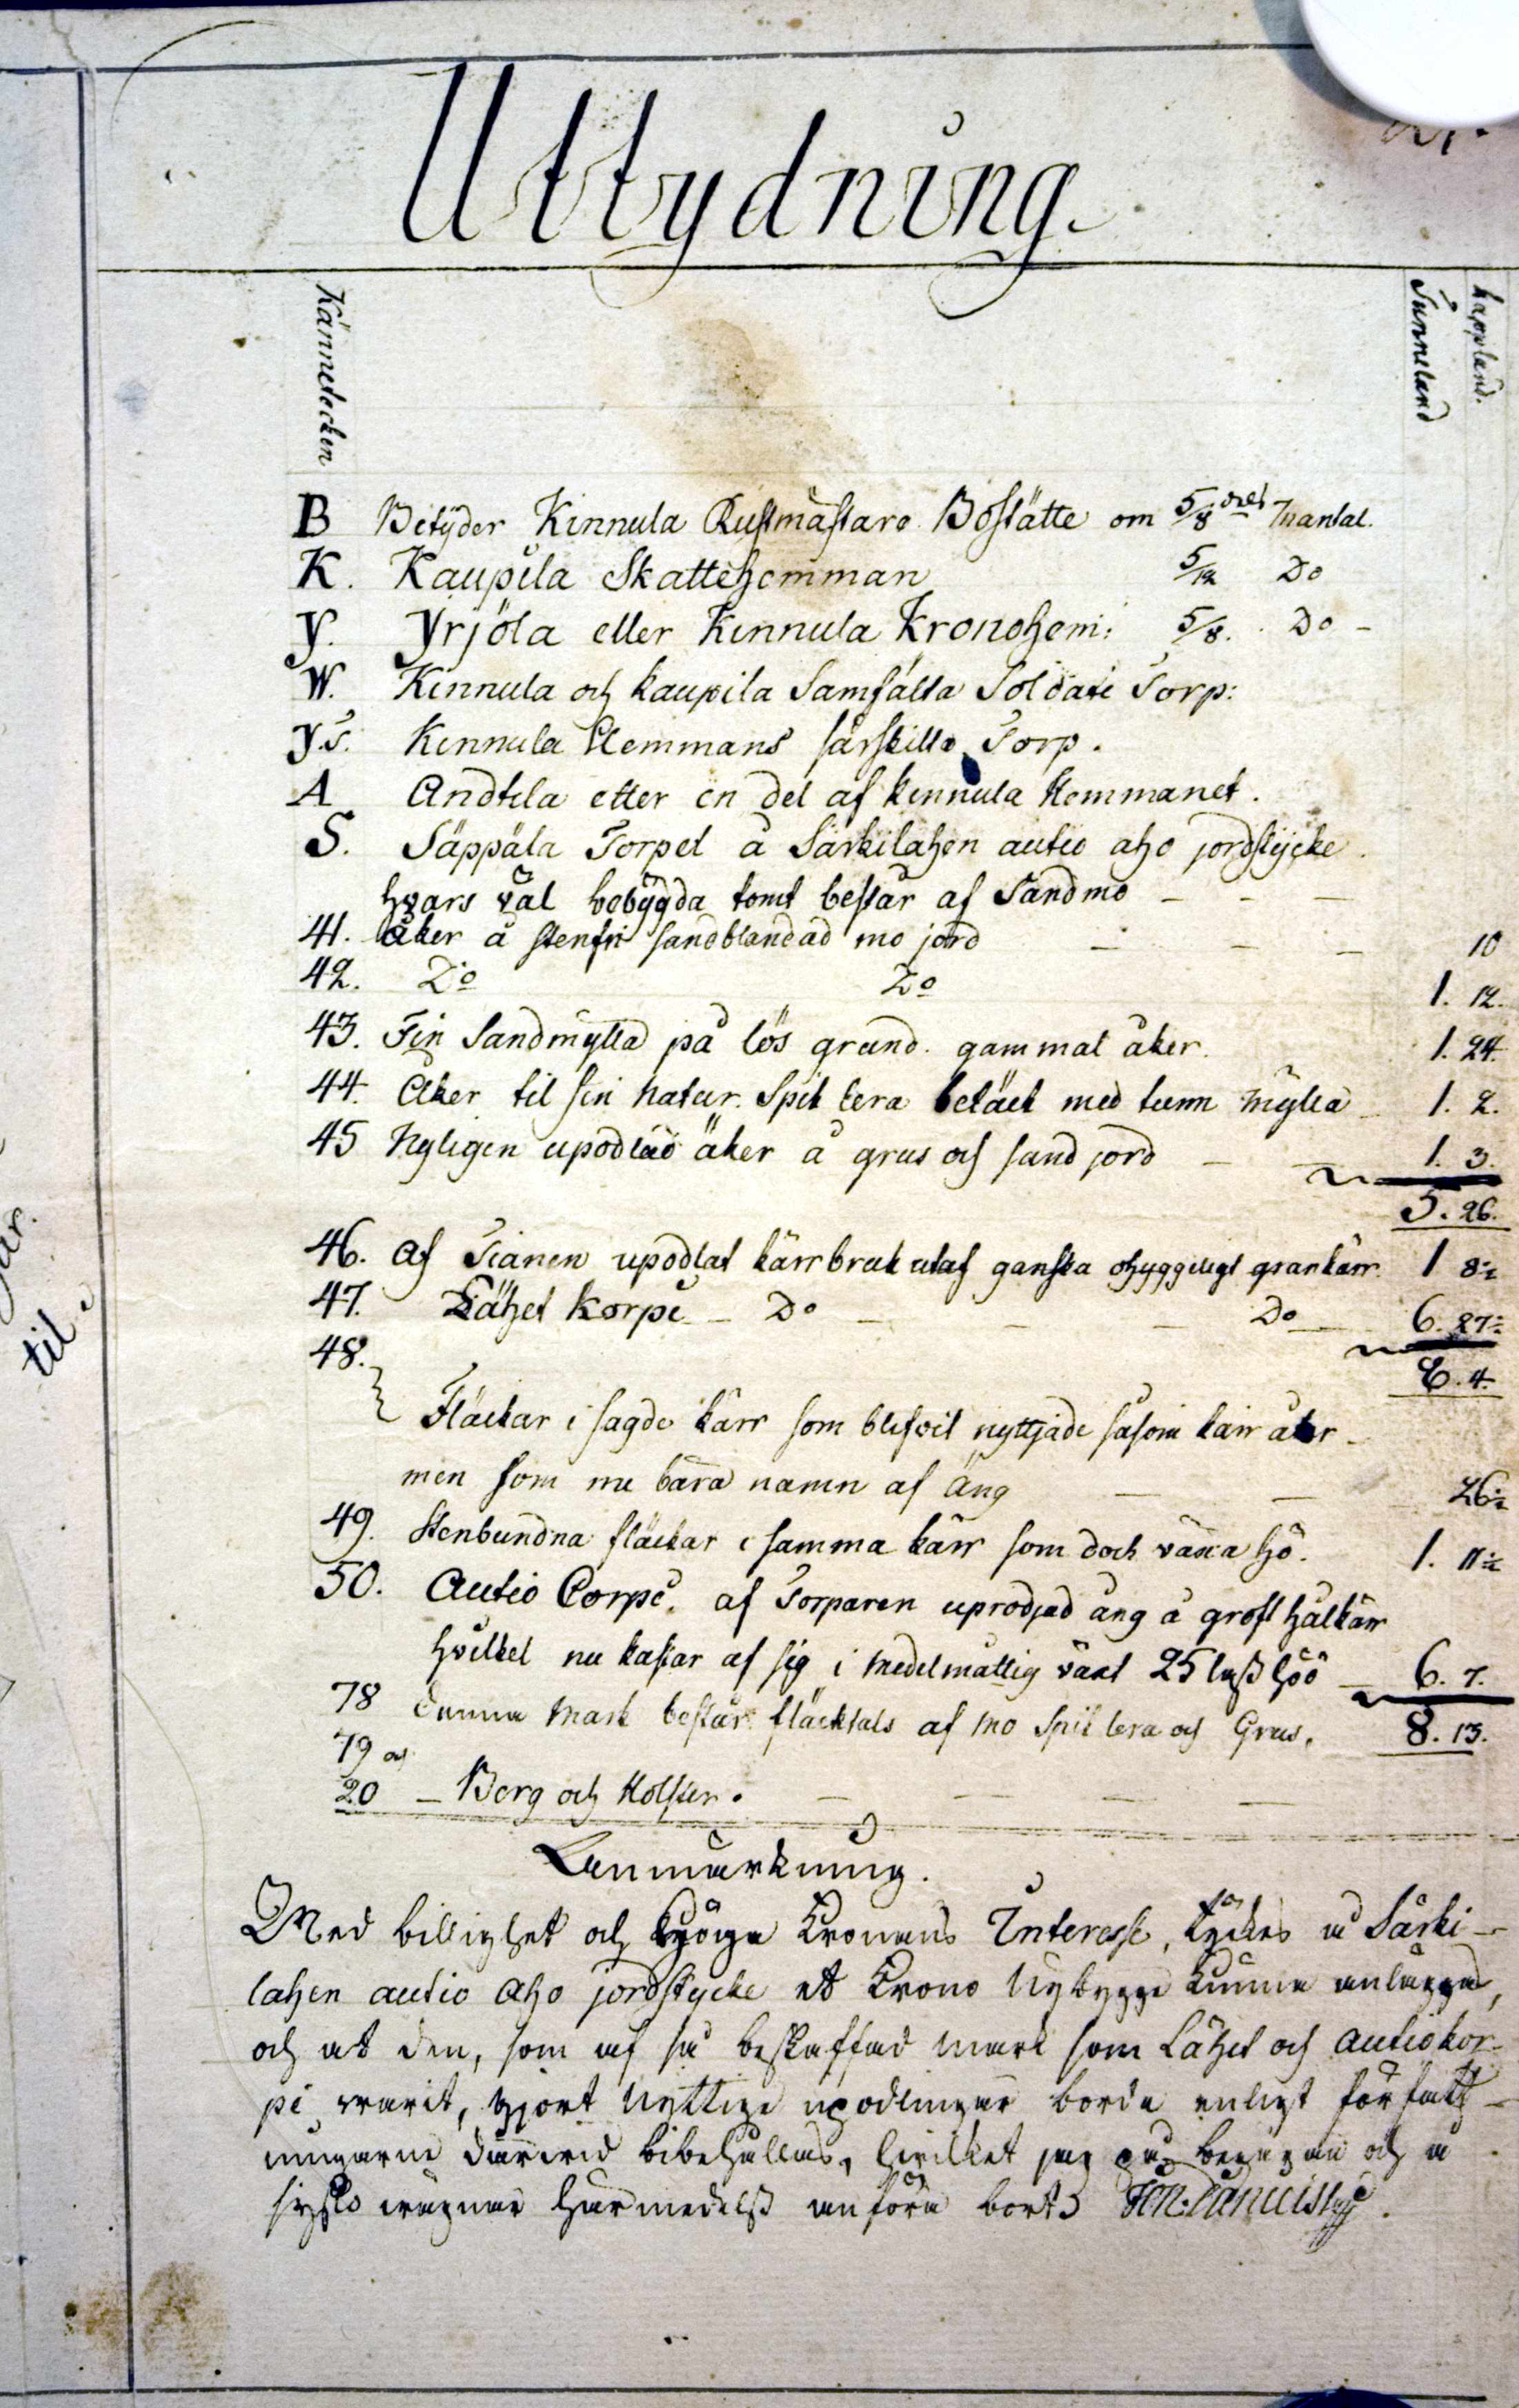 Uttydning.
Kännetecken
Tunneland
kappland.
B Betÿder Kinnula Rustmästare Boställe om 5/8 dels Mantal.
K. Kaupila Skattehemman 5/12 Do
Y. Yrjölä eller Kinnula Kronohem: 5/8. Do -
W. Kinnula och kaupila Samfälta Soldate Torp:
Y.T. Kinnula Hemmans särskilta Torp.
A Andtila eller en del af kinnula Hemmanet.
S. Säppälä Torpet å Särkilahen autio aho jordstÿcke
hvars väl bebÿgda tomt består af Sandmo - - -
41. Åker å stenfri sandblandad mo jord - - - 10
42. Do Do 1. 12.
43. Fin Sandmylla på lös grund. gammal åker. 1. 24.
44. Åker til sin natur. Spik lera betäckt med tunn mylla 1. 2.
45 Nyligen upodlad åker å grus och sand jord - - 1. 3.
5. 26.
46. Af Tianen upodlat kärrbruk utaf ganska ohyggeligt grankärr. 1 8½
47. Lähet Korpi - Do - - - Do 6. 27½
8. 4.
48.
Fläckar i sagde kärr som blifvit nyttjade såsom kärr åker
men som nu bära namn af Äng - - 26½
49. Stenbundna fläckar i samma kärr som doch växa hö. 1. 11½
50. Autio Corpi. af Torparen uprödjad äng å groft hålkärr
hvilket nu kastar af sig i medelmåttig växt 25 lass höö 6. 7.
8. 13.
78 denna Mark består fläcktals af mo Spik lera och Grus.
79 och
20 - Berg och Holster. - - - -
Anmärkning.
Med billighet och höga Kronans Interesse, tyckes å Särki-
lahen autio Aho jordstycke et Krono Nybygge kunna anläggas,
och at den, som af så beskaffad mark som Lähet och autiokor-
pi varit, gjort Nyttige upodlingar borde enligt författ-
ningarne därvid bibehållas, hvilket jag på begäran och å
sysslo vägnar härmedelst anföra bort